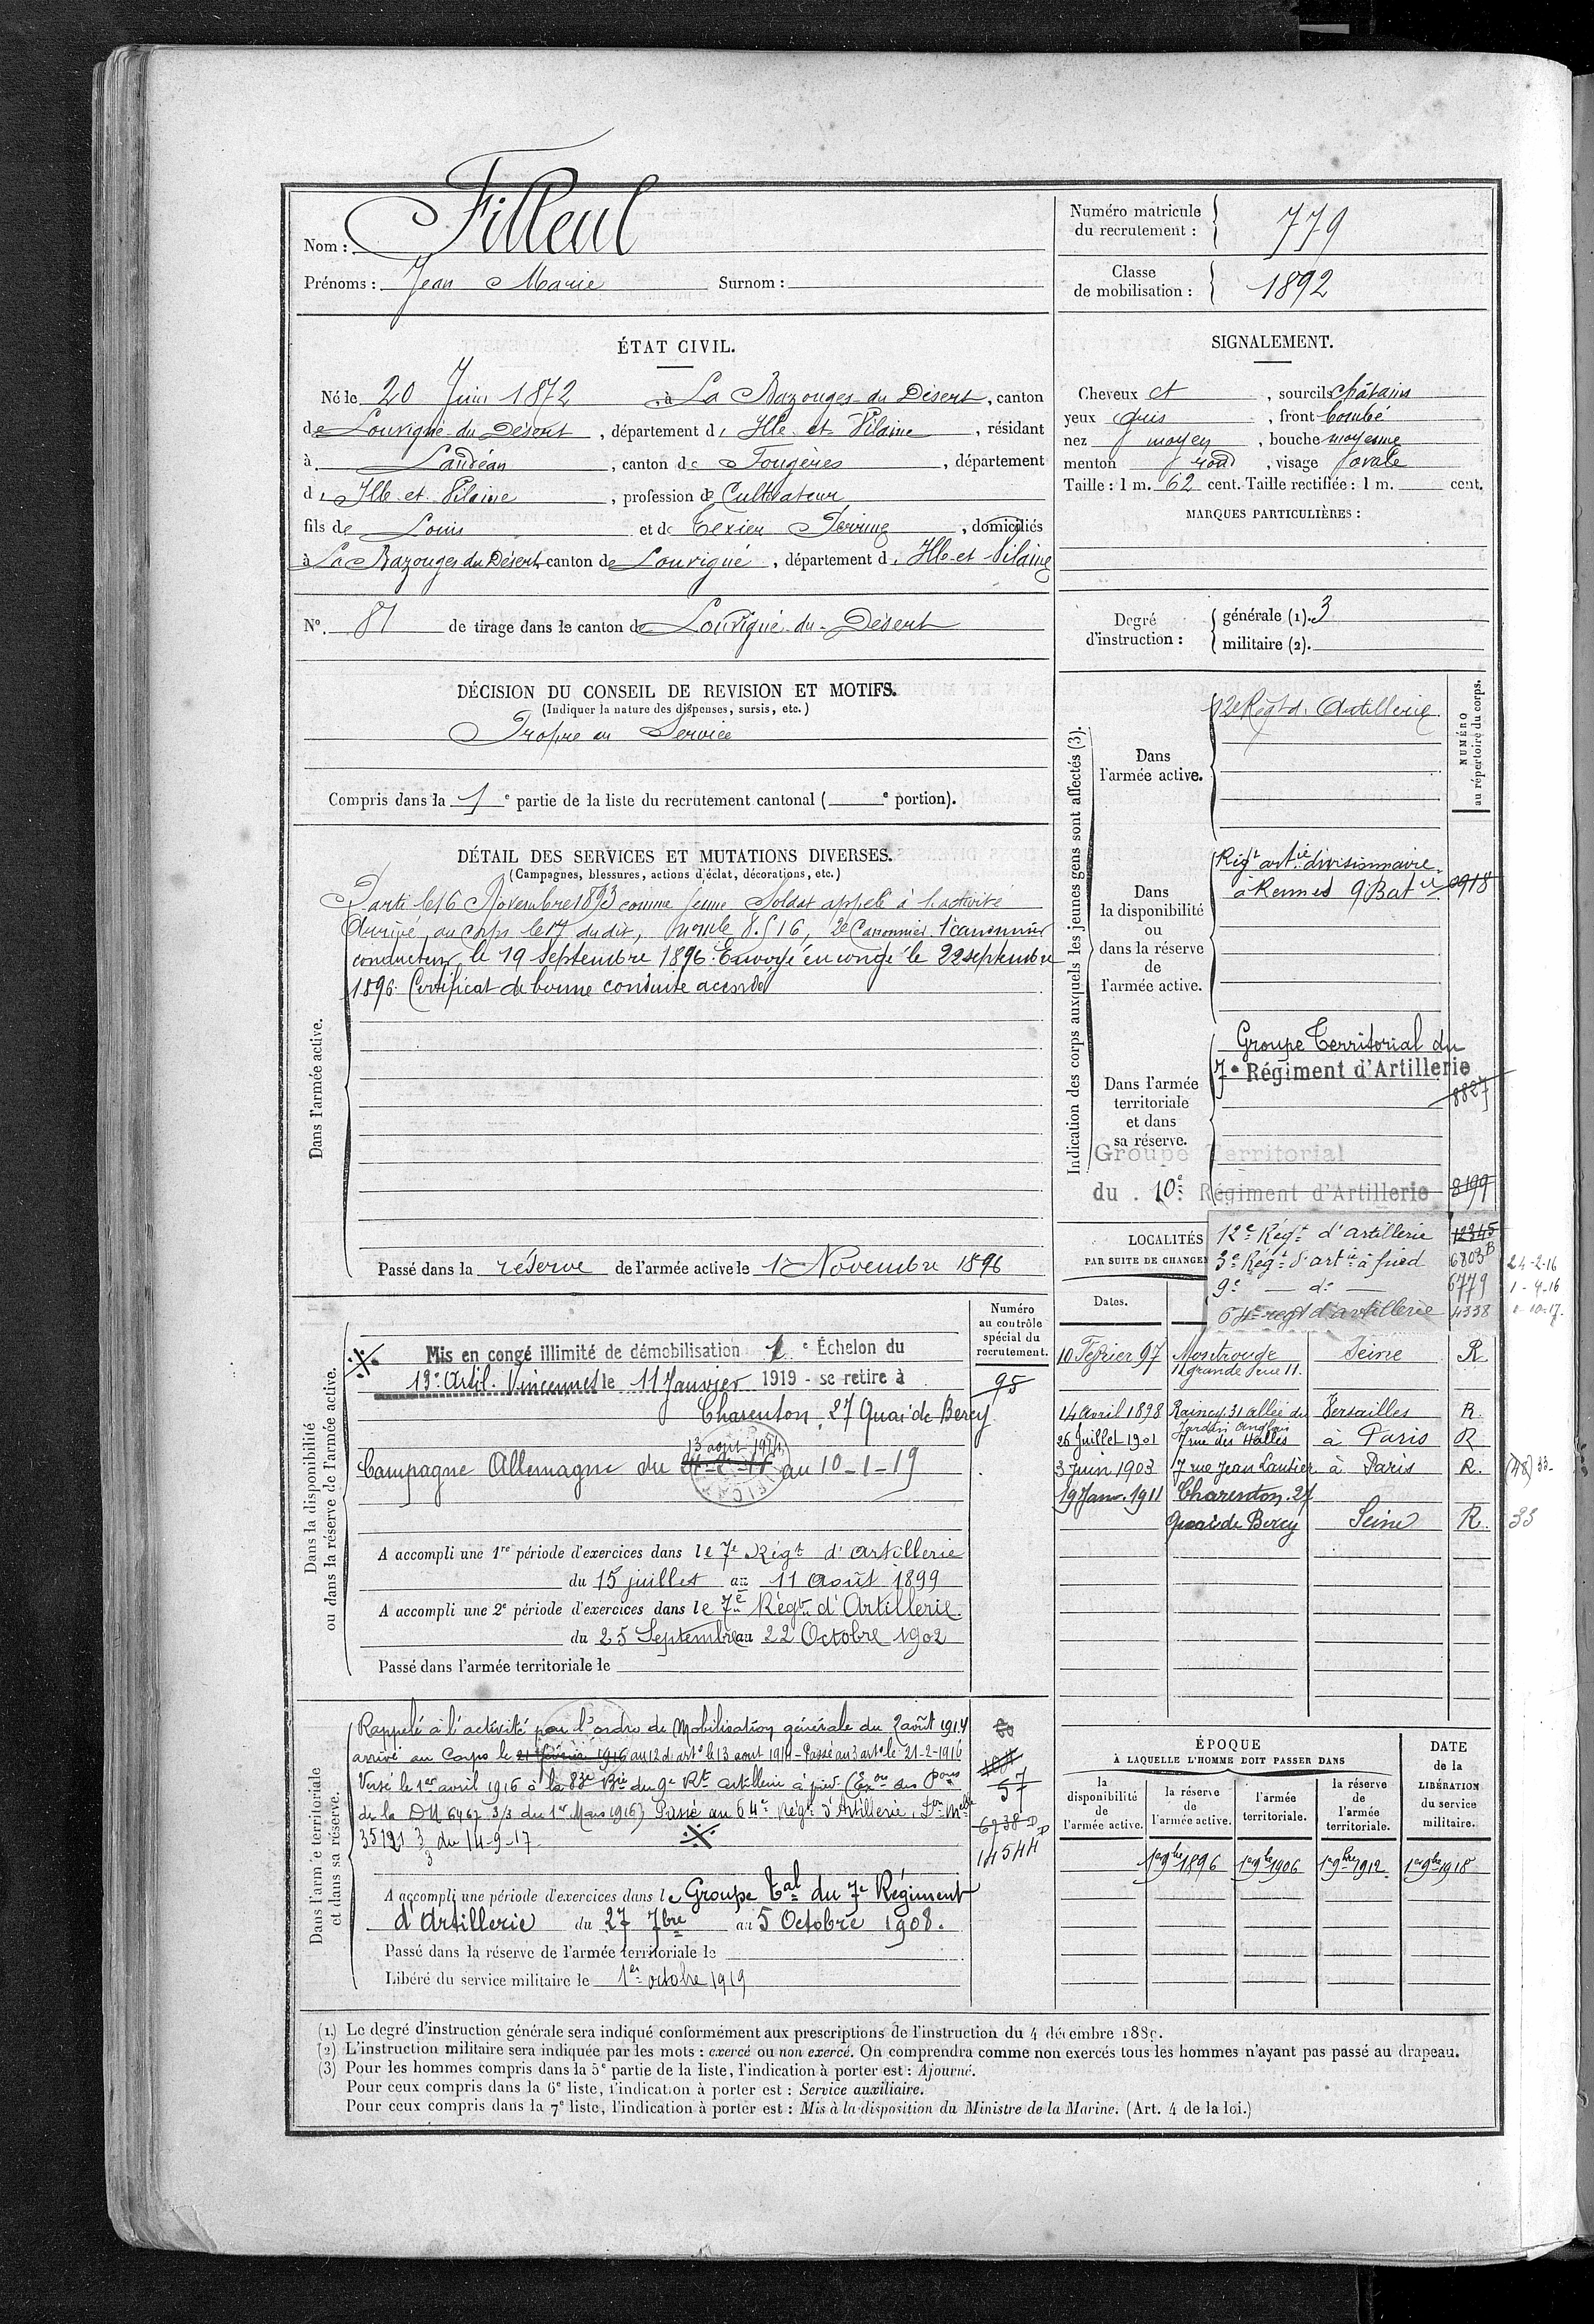 Nom : Filleul
Prénoms : Jean Marie Surnom :
Numéro matricule du recrutement : 779
Classe de mobilisation : 1892
ÉTAT CIVIL.
Né le 20 Juin 1872, à La Bazouges-du Désert, canton
de Louvigné-du Désert, département d' Ille-et-Vilaine, résidant
à Landéan, canton de Fougères, département
d' Ille-et-Vilaine, profession de Cultivateur
fils de Louis et de Texier Perrine, domiciliés
à La Bazouges du Désert canton de Louvigné, département d' Ille-et-Vilaine
N°. 81 de tirage dans le canton de Louvigné-du-Désert
SIGNALEMENT.
Cheveux et, sourcils châtains
yeux gris, front bombé
nez moyen, bouche moyenne
menton rond, visage ovale
Taille : 1 m. 62 cent. Taille rectifiée : 1 m. cent.
MARQUES PARTICULIÈRES :
Degré d'instruction : générale (1). 3
militaire (2).
DÉCISION DU CONSEIL DE REVISION ET MOTIFS.
(Indiquer la nature des dispenses, sursis, etc.)
Propre au Service
Compris dans la 1e partie de la liste du recrutement cantonal ( e portion).
DÉTAIL DES SERVICES ET MUTATIONS DIVERSES.
(Campagnes, blessures, actions d'éclat, décorations, etc.)
Dans l'armée active.
Parti le 16 Novembre 1893 comme jeune Soldat appelé à l'activité
Arrivé au corps le 17 du dit, 2e Canonnier. 1er canonnier
conducteur le 19 septembre 1896. Envoyé en congé le 22 septembre
1896. Certificat de bonne conduite accordé
Passé dans la réserve de l'armée active le 1er Novembre 1896
Indication des corps auxquels les jeunes gens sont affectés (3).
NUMÉRO au répertoire du corps.
Dans l'armée active.
12e Régt d'Artillerie
Dans la disponibilité ou dans la réserve de l'armée active.
Régt artie divisionnaire
à Rennes 9 Batie 0918
Dans l'armée territoriale et dans sa réserve.
Groupe Territorial du
7e Régiment d'Artillerie
8827
Groupe Territorial
du 10e Régiment d'Artillerie 8199
12e Régt d'artillerie 12345
3e Régt d'artie à pied 6803B 24-2-16
9e — do — 6779 1-4-16
64e regt d'artillerie 4338 1-10-17.
LOCALITÉS
PAR SUITE DE CHANGEM
Dates.
10 Février 97 Montrouge Seine R.
11 grande rue 11.
14 avril 1898 Raincy 31 allée du Versailles R.
Jardin Anglais
26 Juillet 1901 7 rue des Halles à Paris R
3 Juin 1903 7 rue Jean Lantier à Paris R. (48) 33-
19 Janv. 1911 Charenton. 27
Quai de Bercy Seine R. 33
Dans la disponibilité ou dans la réserve de l'armée active.
Numéro au contrôle spécial du recrutement.
Mis en congé illimité de démobilisation e Échelon du
13e Artil. Vincennes le 11 Janvier 1919 - se retire à
95
Charenton, 27 Quai de Bercy
13 août 1914
Campagne Allemagne du au 10-1-19
A accompli une 1re période d'exercices dans le 7e Régt d'Artillerie
du 15 juillet au 11 Août 1899
A accompli une 2e période d'exercices dans le 7e Régt d'Artillerie.
du 25 Septembre au 22 Octobre 1902
Passé dans l'armée territoriale le
Dans l'armée territoriale et dans sa réserve.
Rappelé à l'activité par l'ordre de Mobilisation générale du 2 août 1914
arrivé au Corps le 21 février 1916 au 12 d'arte le 13 aout 1914 - Passé au 3 arte le 21-2-1916
Versé le 1er avril 1916 à la 83e Bie du 9e Rt artillerie à pied
57
de la DM 6467 3/3 du 1er Mars 1916) Passé au 64e Régt d'Artillerie,
6738
35121 3/3 du 14-9-17
14544
A accompli une période d'exercices dans le Groupe Tal du 7e Régiment
d'Artillerie du 27 7bre au 5 Octobre 1908.
Passé dans la réserve de l'armée territoriale le
Libéré du service militaire le 1er octobre 1919
ÉPOQUE À LAQUELLE L'HOMME DOIT PASSER DANS
DATE de la LIBÉRATION du service militaire.
la disponibilité de l'armée active.
la réserve de l'armée active.
l'armée territoriale.
la réserve de l'armée territoriale.
1er 9bre 1896 1er 9bre 1906 1er 9bre 1912 1er 9bre 1918
(1) Le degré d'instruction générale sera indiqué conformément aux prescriptions de l'instruction du 4 décembre 1889.
(2) L'instruction militaire sera indiquée par les mots : exercé ou non exercé. On comprendra comme non exercés tous les hommes n'ayant pas passé au drapeau.
(3) Pour les hommes compris dans la 5e partie de la liste, l'indication à porter est : Ajourné.
Pour ceux compris dans la 6e liste, l'indication à porter est : Service auxiliaire.
Pour ceux compris dans la 7e liste, l'indication à porter est : Mis à la disposition du Ministre de la Marine. (Art. 4 de la loi.)